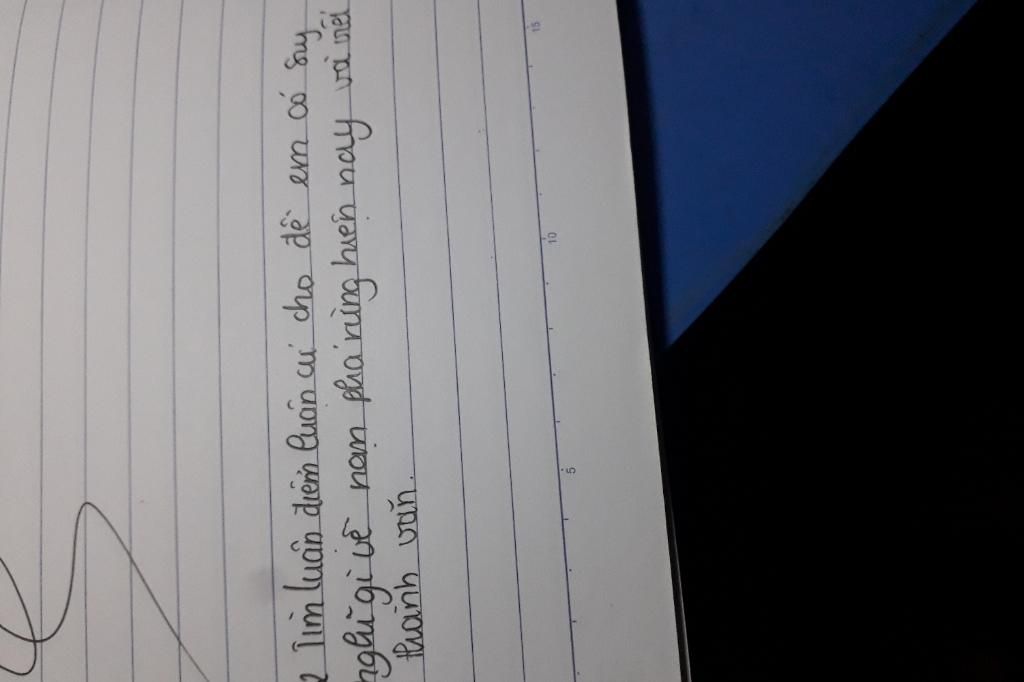 2 Tìm luận điểm luận cứ cho đề em có suy
nghĩ gì về nạn phá rừng hiện nay và viết
thành văn.
5
10
15